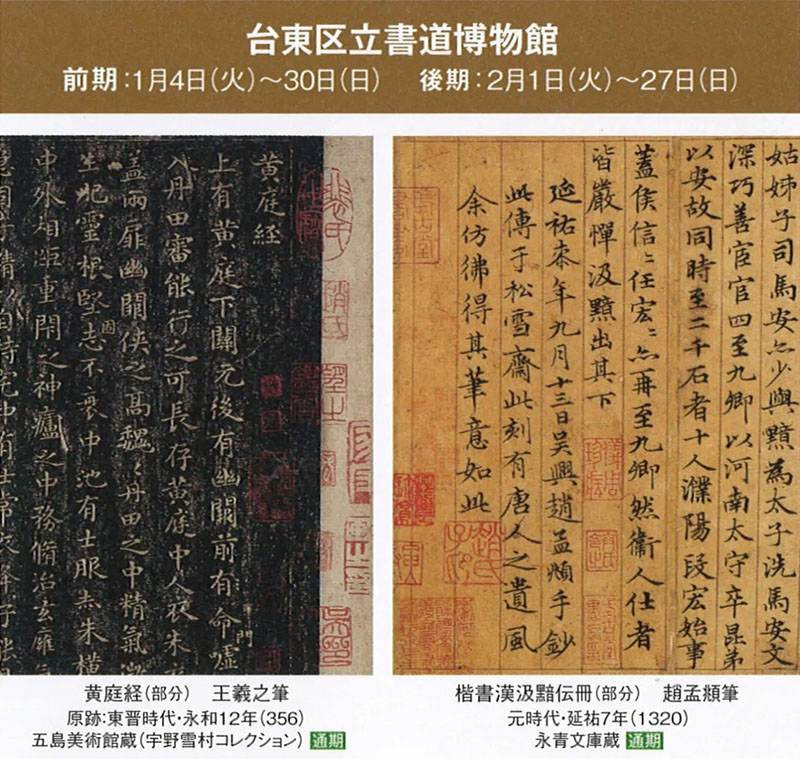 台東区立書道博物館
前期:1月4日(火)〜30日(日)　後期:2月1日(火)〜27日(日)
黄庭經
上有黄庭下關元後有幽闕前有命門噓
入丹田審能行之可長存黄庭中人衣朱
盖兩扉幽闕俠之高巍〻丹田之中精氣
生肥靈根堅志不衰中池有士服赤朱横
中外相距重閉之神廬之中務脩治玄廱
姑姊子司馬安亦少與黯為太子洗馬安文
深巧善宦官四至九卿以河南太守卒昆弟
以安故同時至二千石者十人濮陽段宏始事
蓋侯信〻任宏〻亦再至九卿然衞人仕者
皆嚴憚汲黯出其下
延祐柒年九月十三日吳興趙孟頫手鈔
此傳于松雪齋此刻有唐人之遺風
余仿彿得其筆意如此
黄庭経(部分)　王羲之筆
原跡:東晋時代・永和12年(356)
五島美術館蔵(宇野雪村コレクション) 通期
楷書漢汲黯伝冊(部分)　趙孟頫筆
元時代・延祐7年(1320)
永青文庫蔵 通期